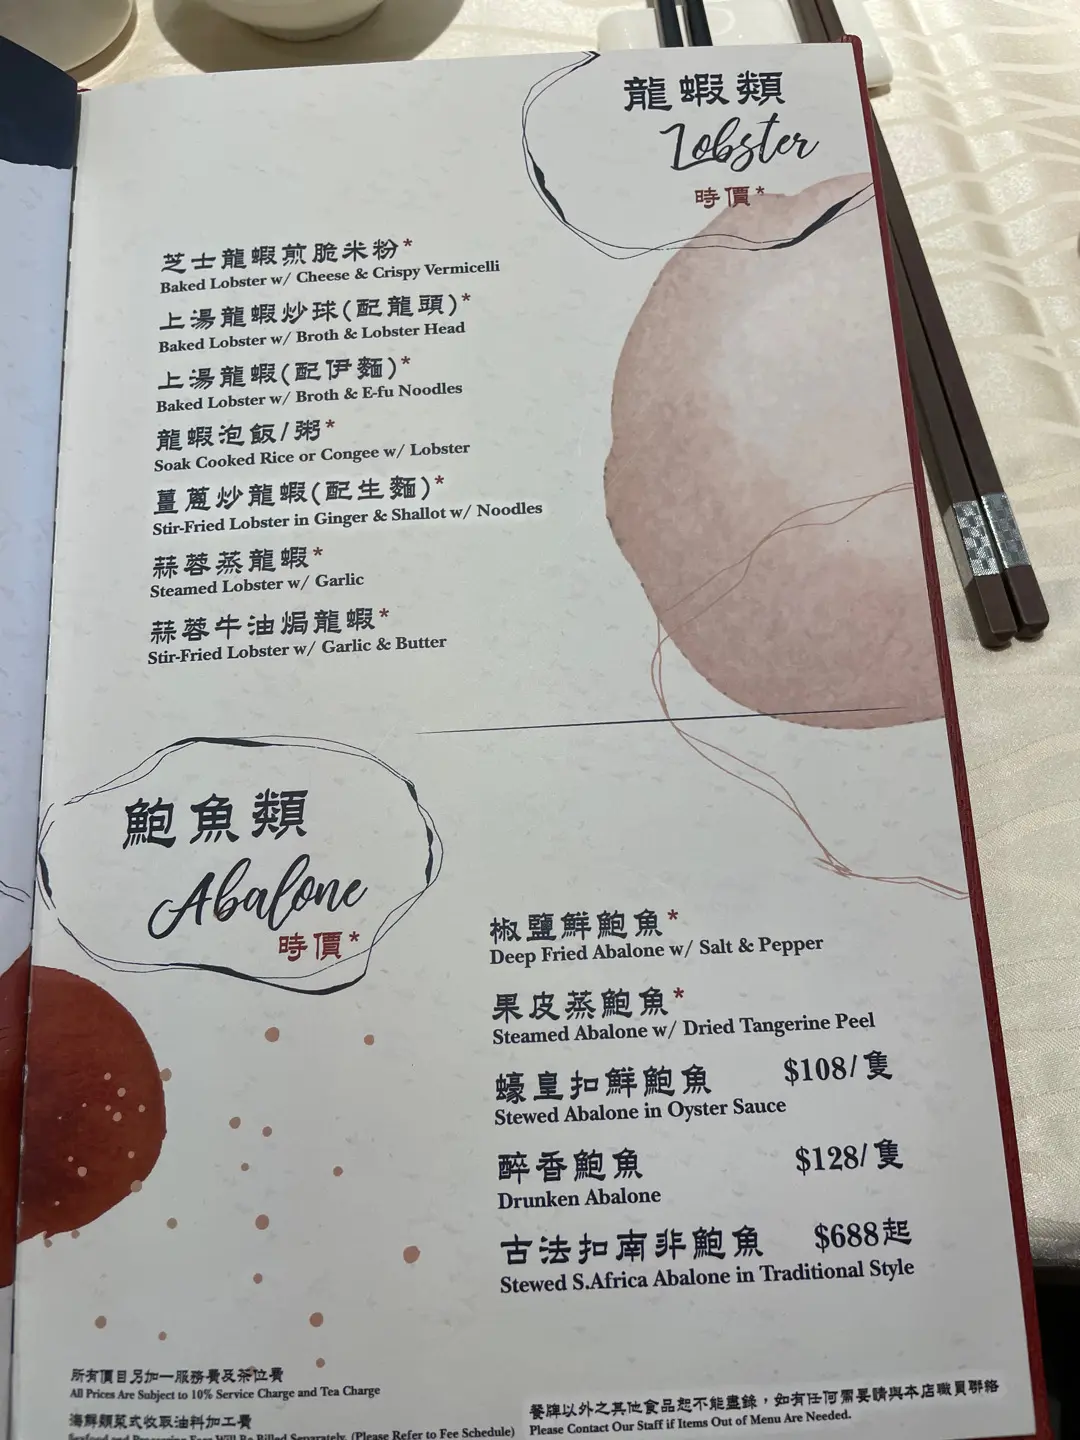 龍蝦類
Lobster
時價*
芝士龍蝦煎脆米粉*
Baked Lobster w/ Cheese & Crispy Vermicelli
上湯龍蝦炒球(配龍頭)*
Baked Lobster w/ Broth & Lobster Head
上湯龍蝦(配伊麵)*
Baked Lobster w/ Broth & E-fu Noodles
龍蝦泡飯/粥*
Soak Cooked Rice or Congee w/ Lobster
薑蔥炒龍蝦(配生麵)*
Stir-Fried Lobster in Ginger & Shallot w/ Noodles
蒜蓉蒸龍蝦*
Steamed Lobster w/ Garlic
蒜蓉牛油焗龍蝦*
Stir-Fried Lobster w/ Garlic & Butter
鮑魚類
Abalone
時價*
椒鹽鮮鮑魚*
Deep Fried Abalone w/ Salt & Pepper
果皮蒸鮑魚*
Steamed Abalone w/ Dried Tangerine Peel
蠔皇扣鮮鮑魚 $108/隻
Stewed Abalone in Oyster Sauce
醉香鮑魚 $128/隻
Drunken Abalone
古法扣南非鮑魚 $688起
Stewed S.Africa Abalone in Traditional Style
所有價目另加一服務費及茶位費
All Prices Are Subject to 10% Service Charge and Tea Charge
海鮮類菜式收取油料加工費
Seafood and Processing Fees Will Be Billed Separately. (Please Refer to Fee Schedule)
餐牌以外之其他食品恕不能盡錄，如有任何需要請與本店職員聯絡
Please Contact Our Staff if Items Out of Menu Are Needed.